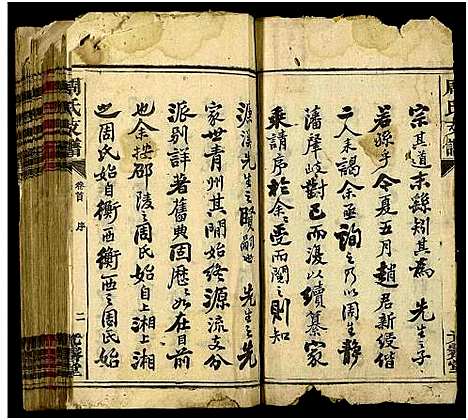 宗其道未繇矧其為 先生之子
若孫乎今夏五月趙君新綬偕
二人來謁余亟詢之乃以周生靜
藩犀岐對已而漫以續纂家
乘請序於余之受而閱之則知
濂溪先生之賢裔也 先生之先
家世青州其開始終源流支分
派別詳著舊典固歷如在目前
也余按邵陵之周氏始自上湘上湘
之周氏始自衡西衡西之周氏始
周氏支譜
卷首
序
二